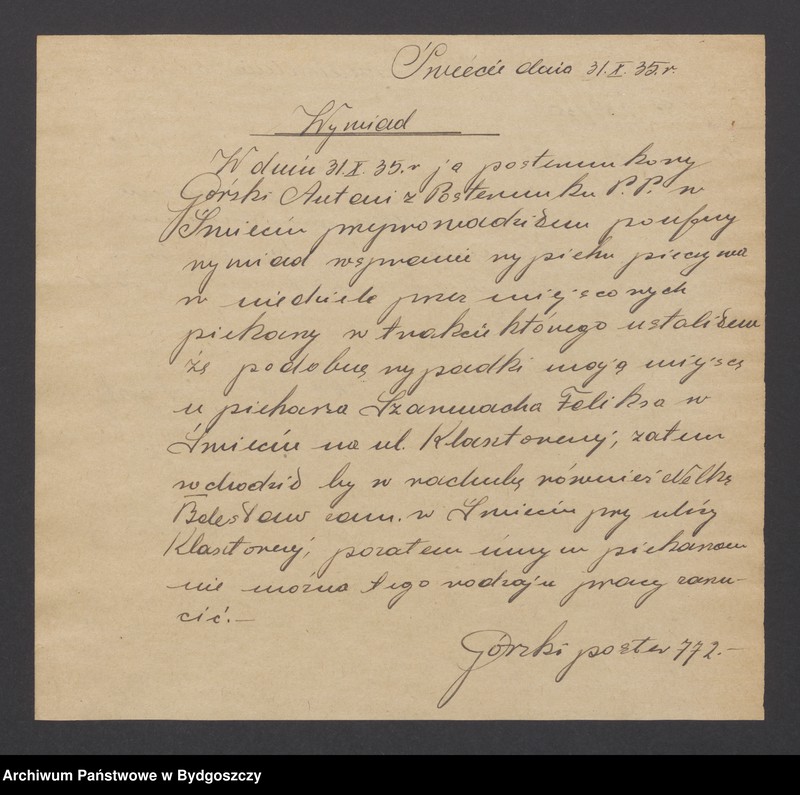 Świecie dnia 31.X.35.r.
Wywiad
W dniu 31.X.35.r ja posterunkowy
Górski Antoni z Posterunku P.P. w
Świeciu przeprowadziłem poufny
wywiad wsprawie wypieku pieczywa
w niedziele przez miejscowych
piekarzy w trakcie którego ustaliłem
że podobne wypadki mają miejsce
u piekarza Szarmacha Feliksa w
Świeciu na ul. Klasztornej, zatem
wchodził by w rachubę również
Bolesław zam. w Świeciu przy ulicy
Klasztornej, pozatem innym piekarzom
nie można tego rodzaju pracy zarzu-
cić.-
Górski poster 772.-
Archiwum Państwowe w Bydgoszczy